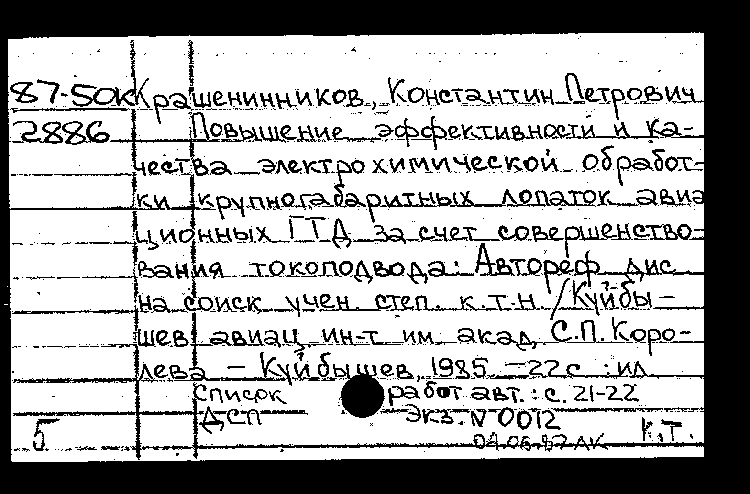 87-50к Крашенинников, Константин Петрович
2886 Повышение эффективности и ка-
чества электрохимической обработ-
ки крупногабаритных лопаток авиа
ционных ГТД за счет совершенство-
вания токоподвода: Автореф дис
на соиск учен. степ. к.т.н. /Куйбы-
шев авиац. ин-т им. акад. С.П. Коро-
лева - Куйбышев, 1985. -22 с : ил
Список работ авт. : с. 21-22
ДСП Экз. N 0012
5 04.06.87 АК К.Т.